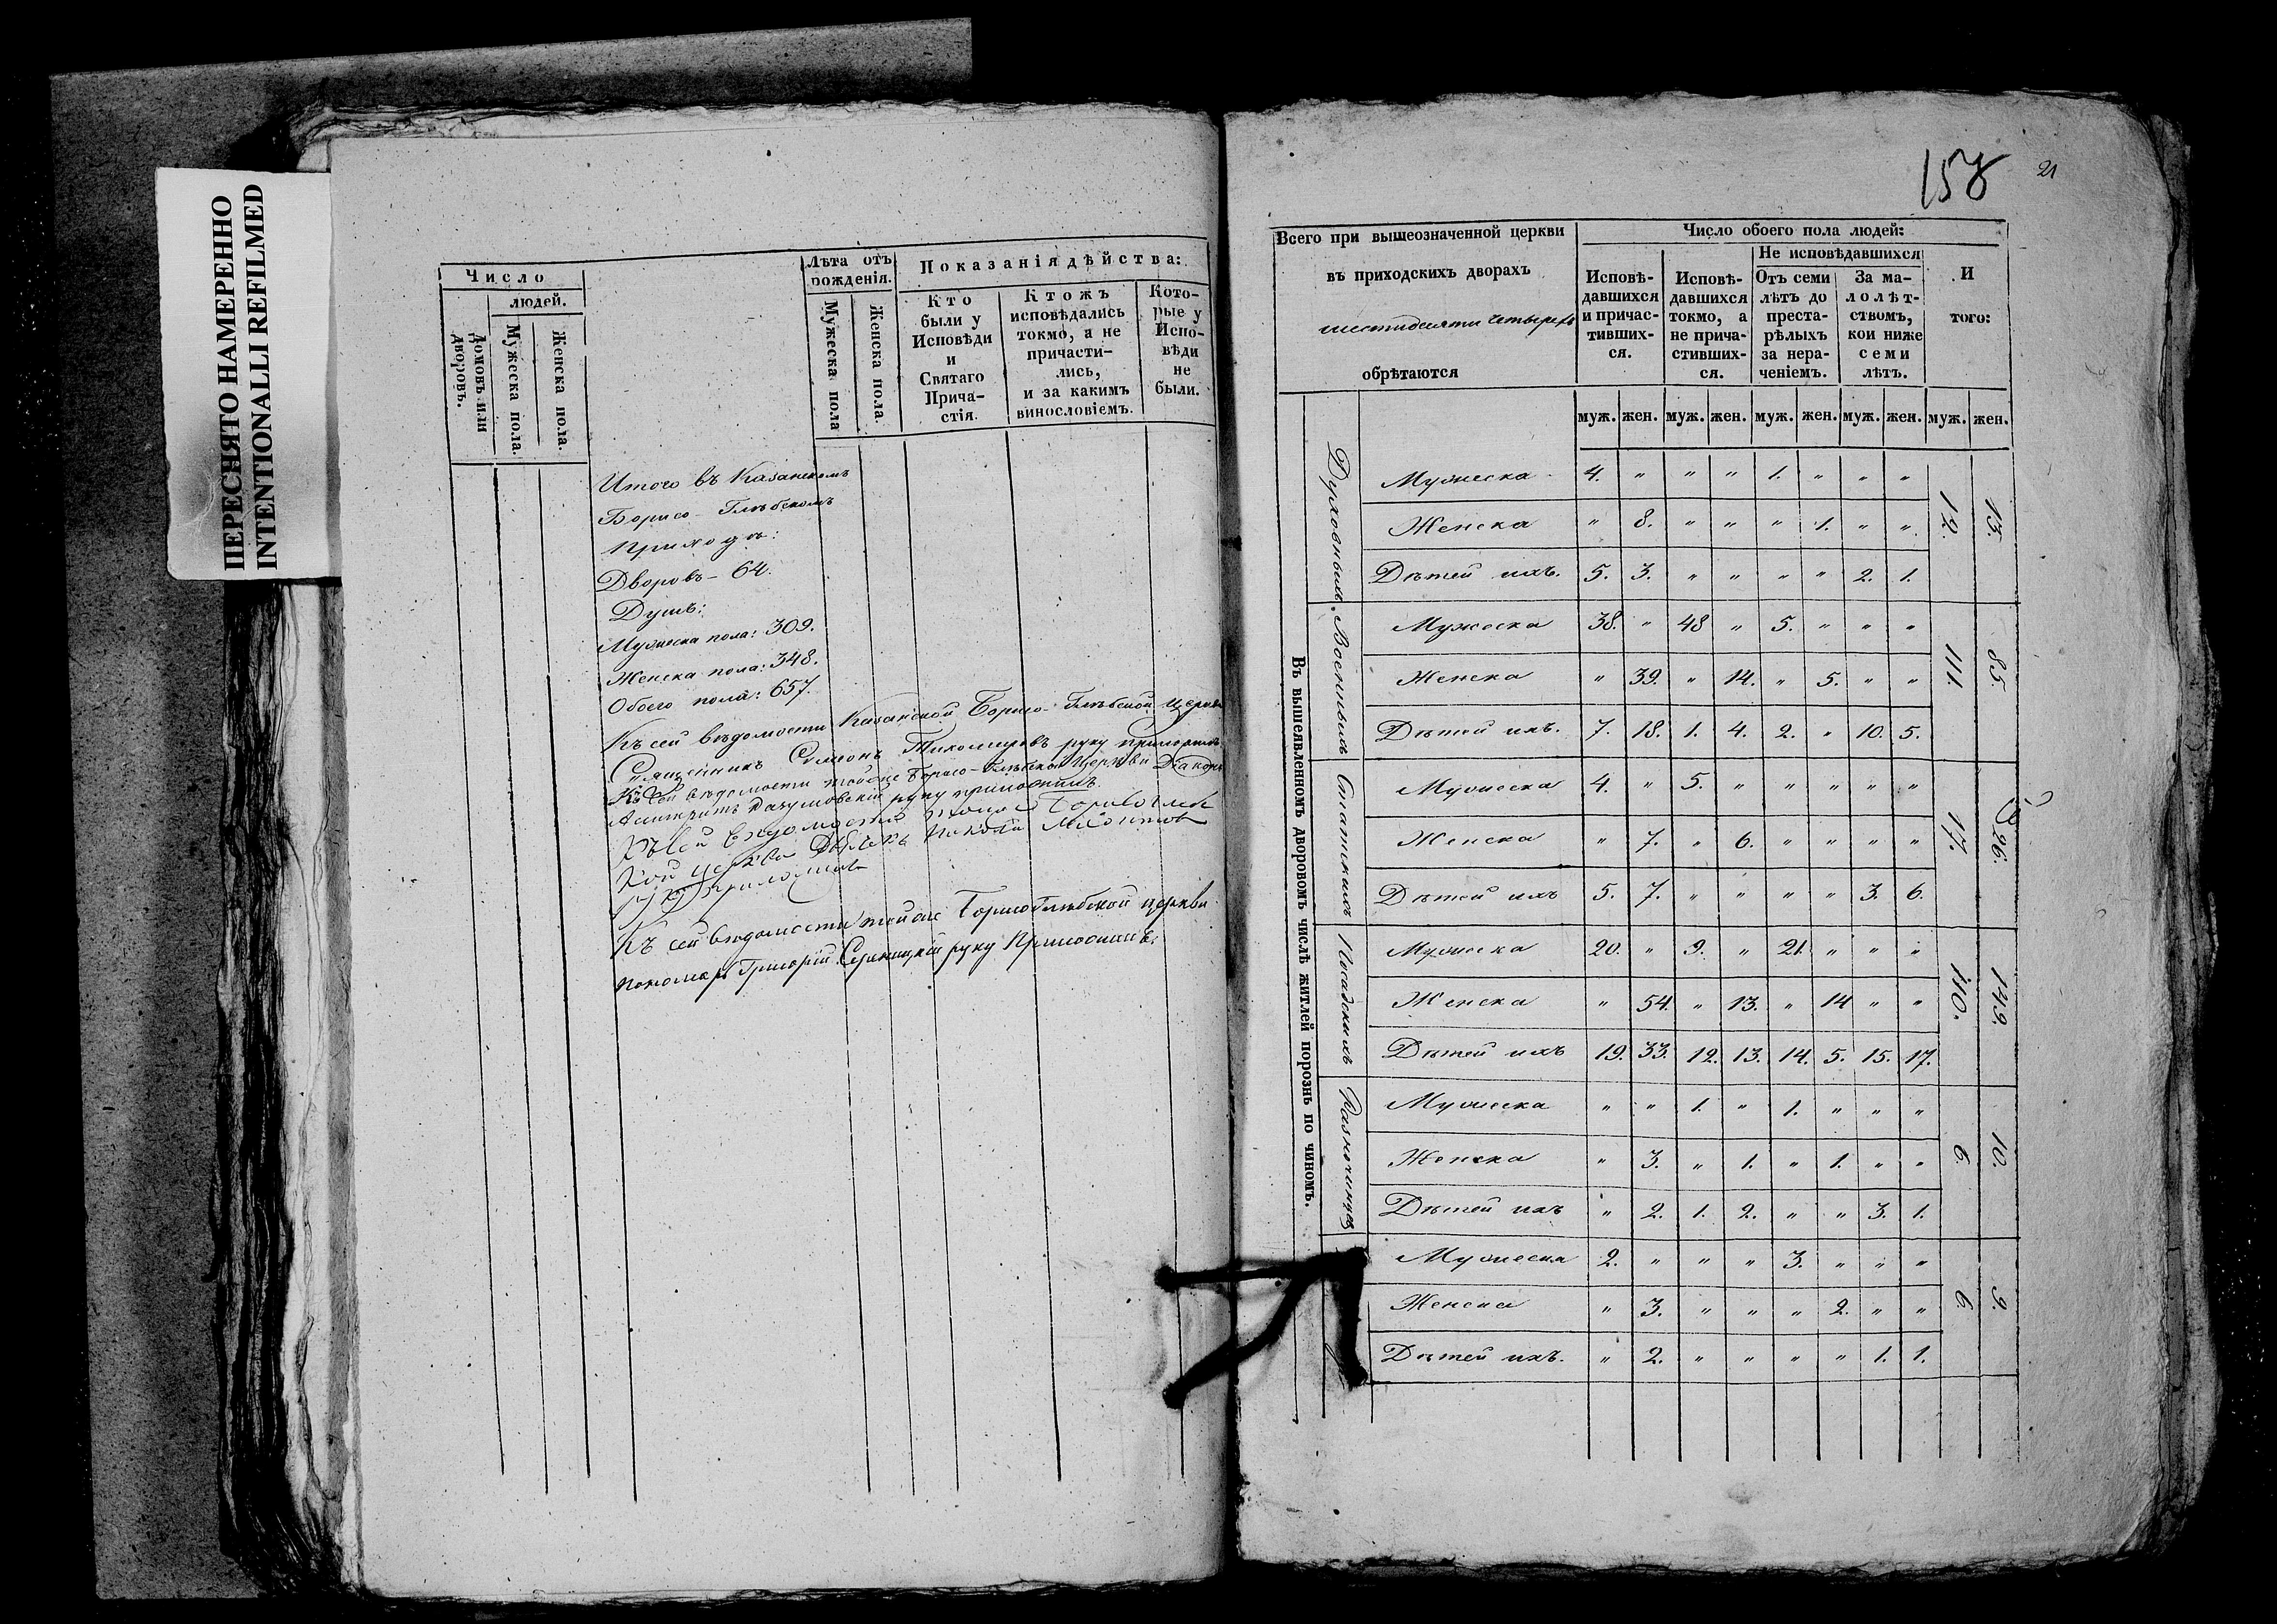 ПЕРЕСНЯТО НАМЕРЕННО
INTENTIONALLI REFILMED
Число
людей.
Домовъ или дворовъ.
Мужеска пола.
Женска пола.
Лѣта отъ рожденія.
Мужеска пола
Женска пола.
Показанія дѣйства:
Кто были у Исповѣди и Святаго Причастія.
Ктожъ исповѣдались токмо, а не причастились, и за какимъ винословіемъ.
Которые у Исповѣди не были.
Итого въ Казанскомъ
Борисо-Глѣбскомъ
приходѣ:
Дворовъ - 64.
Душъ:
Мужеска пола: 309.
Женска пола: 348.
Обоего пола: 657.
Къ сей вѣдомости Казанской Борисо-Глѣбской церкви
Священникъ Симеонъ Тихомировъ руку приложилъ
Къ сей вѣдомости тойже Борисо-Глѣбской Церкви Діаконъ
руку приложилъ.
Къ сей вѣдомости тойже
церкви Дьячекъ Николай
руку приложилъ
Къ сей вѣдомости тойже Борисоглѣбской церкви
пономарь Григорій руку приложилъ.
158
21
Всего при вышеозначенной церкви
въ приходскихъ дворахъ
шестидесяти четырехъ
обрѣтаются
Число обоего пола людей:
Исповѣдавшихся и причастившихся.
Исповѣдавшихся токмо, а не причастившихся.
Не исповѣдавшихся
Отъ семи лѣтъ до престарѣлыхъ за нераченіемъ.
За малолѣтствомъ, кои ниже семи лѣтъ.
И того:
муж. жен. муж. жен. муж. жен. муж. жен. муж. жен.
Въ вышеявленномъ дворовомъ числѣ житлей порознь по чиномъ.
Духовныхъ
Мужеска 4. " " " 1. " " "
Женска " 8. " " " 1. " "
Дѣтей ихъ. 5. 3. " " " " 2. 1.
12. 13.
Военныхъ
Мужеска 38. " 48 " 5. " " "
Женска " 39. " 14. " 5. " "
Дѣтей ихъ. 7. 18. 1. 4. 2. " 10. 5.
111. 85.
Статскихъ
Мужеска 4. " 5. " " " " "
Женска " 7. " 6. " " " "
Дѣтей ихъ 5. 7. " " " " 3. 6.
17. 26.
Посадскихъ
Мужеска 20. " 9. " 21. " " "
Женска " 54. " 13. " 14 " "
Дѣтей ихъ 19. 33. 12. 13. 14. 5. 15. 17.
110. 149.
Разночинцев
Мужеска " " 1. " 1. " " "
Женска " 3. " 1. " 1. " "
Дѣтей ихъ " 2. 1. 2. " " 3. 1.
6. 10.
Мужеска 2. " " " 3. " " "
Женска " 3. " " " 2. " "
Дѣтей ихъ. " 2. " " " " 1. 1.
6. 9.